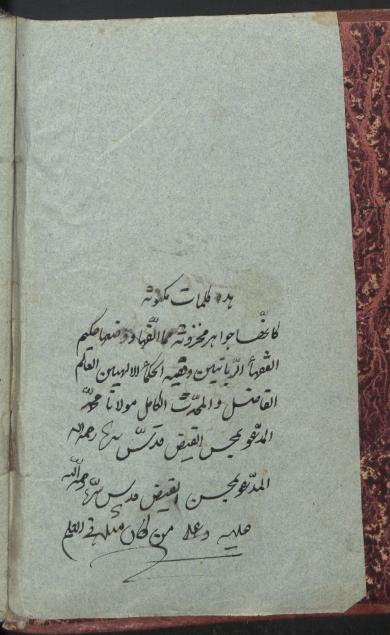 هذه كلمات مكنونة
كانّها جواهر مخزونة مما الّفها ووضعها حكيم
الفقهاء الربانيين وفقيه الحكماء الالهيين العالم
الفاضل والمحدث الكامل مولانا محمد
المدعو بمحسن الفيض قدس سره رحمة الله
المدعو بمحسن الفيض قدس سره رحمة الله
عليه وعلى من كان مثله في العلم